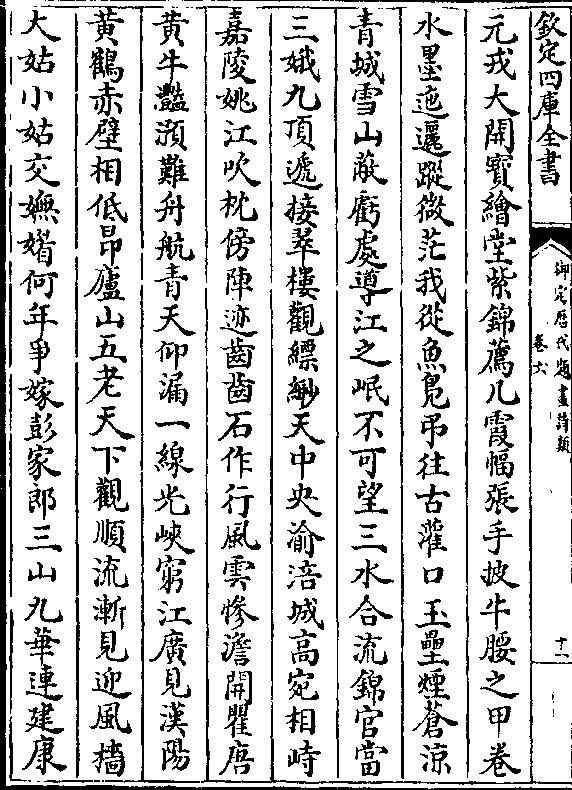 欽定四庫全書
御定歴代題畫詩類
卷六
十一
元戎大開寳繪堂紫錦薦几霞幅張手披牛腰之甲卷
水墨迤邐蹤微茫我從魚鳬弔往古灌口玉壘煙蒼涼
青城雪山蔽虧處導江之岷不可望三水合流錦官當
三娥九頂遞接翠樓觀縹緲天中央渝涪城高宛相峙
嘉陵姚江吹枕傍陣迹齒齒石作行風雲慘澹開瞿唐
黄牛灔澦難舟航青天仰漏一線光峽窮江廣見漢陽
黄鶴赤壁相低昂廬山五老天下觀順流漸見迎風檣
大姑小姑交嫵媚何年爭嫁彭家郎三山九華連建康